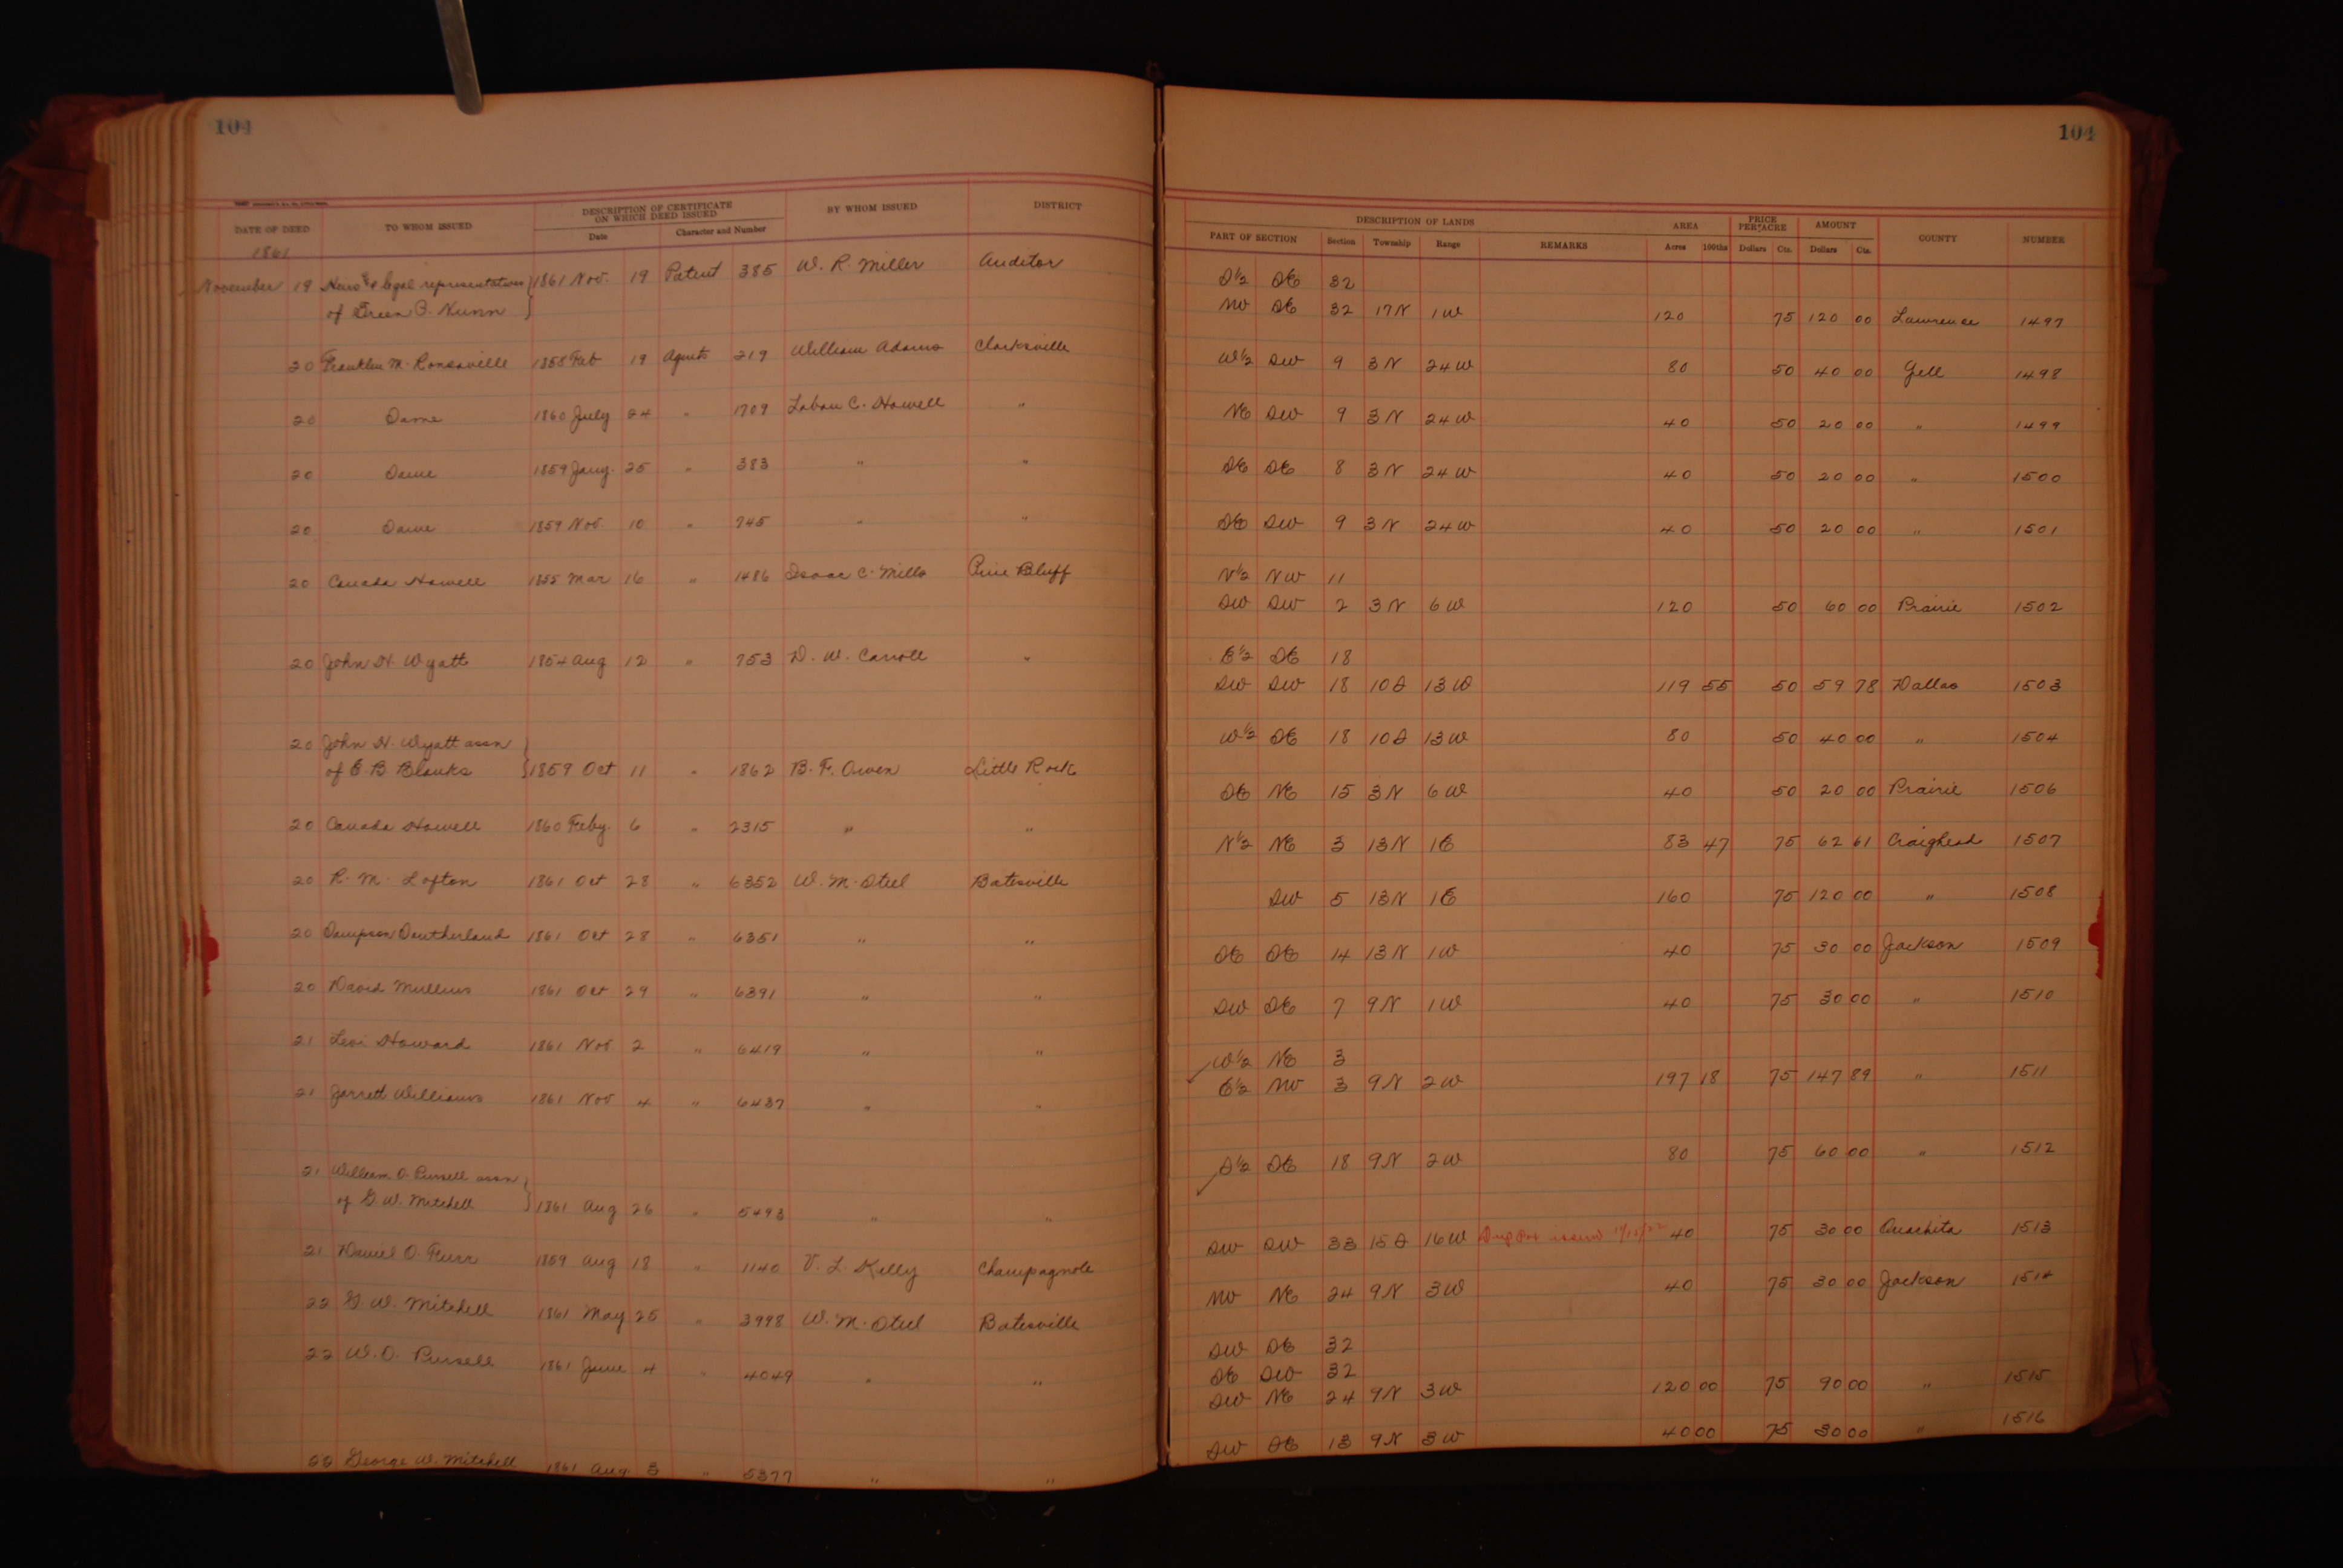 104
DATE OF DEED TO WHOM ISSUED DESCRIPTION OF CERTIFICATE ON WHICH DEED ISSUED Date Character and Number BY WHOM ISSUED DISTRICT
1861
November 19 Heirs & legal representatives 1861 Nov. 19 Patent 385 W. R. Miller Auditor
of Green P. Nunn
20 Franklin M. Ronsaville 1858 Feb 19 Agents 219 William Adams Clarksville
20 Same 1860 July 24 " 1709 Laban C. Howell "
20 Same 1859 Jany. 25 " 383 " "
20 Same 1859 Nov. 10 " 745 " "
20 Canada Howell 1855 Mar 16 " 1486 Isaac C. Mills Pine Bluff
20 John H. Wyatt 1854 Aug 12 " 753 D. W. Carroll "
20 John H. Wyatt assn
of E. B. Blanks 1859 Oct 11 " 1862 B. F. Owen Little Rock
20 Canada Howell 1860 Feby. 6 " 2315 " "
20 R. M. Lofton 1861 Oct 28 " 6352 W. M. Steel Batesville
20 Sampson Southerland 1861 Oct 28 " 6351 " "
20 David Mullins 1861 Oct 29 " 6391 " "
21 Levi Howard 1861 Nov. 2 " 6419 " "
21 Jarrett Williams 1861 Nov 4 " 6437 " "
21 William O. Pursell assn
of G. W. Mitchell 1861 Aug 26 " 5493 " "
21 Daniel O. Furr 1859 Aug 18 " 1140 V. L. Kelly Champagnole
22 G. W. Mitchell 1861 May 25 " 3998 W. M. Steel Batesville
22 W. O. Pursell 1861 June 4 " 4049 " "
22 George W. Mitchell 1861 Aug. 3 " 5377 " "
104
DESCRIPTION OF LANDS AREA PRICE PER ACRE AMOUNT
PART OF SECTION Section Township Range REMARKS Acres 100ths Dollars Cts. Dollars Cts. COUNTY NUMBER
S½ SE 32
NW SE 32 17N 1W 120 75 120 00 Lawrence 1497
W½ SW 9 3N 24W 80 50 40 00 Yell 1498
NE SW 9 3N 24W 40 50 20 00 " 1499
SE SE 8 3N 24W 40 50 20 00 " 1500
SE SW 9 3N 24W 40 50 20 00 " 1501
N½ NW 11
SW SW 2 3N 6W 120 50 60 00 Prairie 1502
E½ SE 18
SW SW 18 10S 13W 119 55 50 59 78 Dallas 1503
W½ SE 18 10S 13W 80 50 40 00 " 1504
SE NE 15 3N 6W 40 50 20 00 Prairie 1506
N½ NE 3 13N 1E 83 47 75 62 61 Craighead 1507
SW 5 13N 1E 160 75 120 00 " 1508
SE SE 14 13N 1W 40 75 30 00 Jackson 1509
SW SE 7 9N 1W 40 75 30 00 " 1510
W½ NE 3
E½ NW 3 9N 2W 197 18 75 147 89 " 1511
S½ SE 18 9N 2W 80 75 60 00 " 1512
SW SW 33 15S 16W issued 40 75 30 00 Ouachita 1513
NW NE 24 9N 3W 40 75 30 00 Jackson 1514
SW SE 32
SE SW 32
SW NE 24 9N 3W 120 00 75 90 00 " 1515
SW SE 13 9N 3W 40 00 75 30 00 " 1516